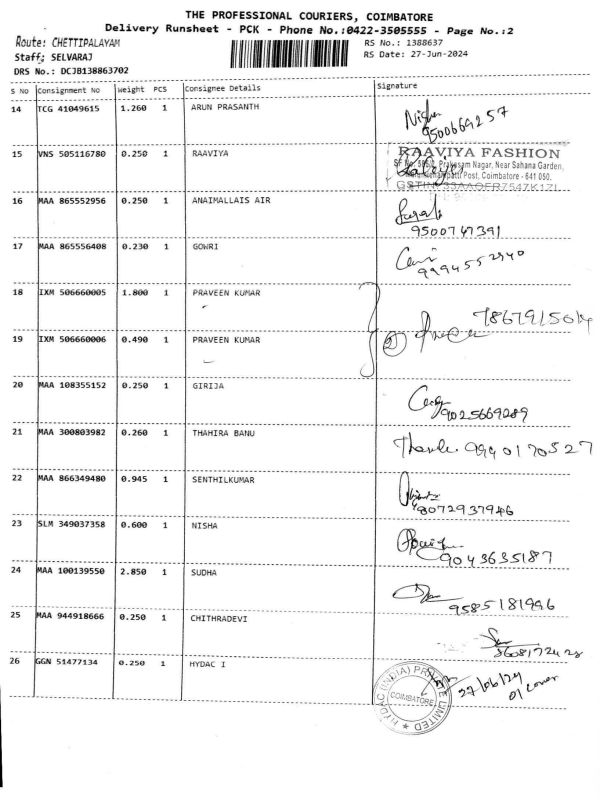 THE PROFESSIONAL COURIERS, COIMBATORE
Delivery Runsheet - PCK - Phone No.:0422-3505555 - Page No.:2
Route: CHETTIPALAYAM
RS No.: 1388637
Staff; SELVARAJ
RS Date: 27-Jun-2024
DRS No.: DCJB138863702
S No Consignment No Weight PCS Consignee Details Signature
14 TCG 41049615 1.260 1 ARUN PRASANTH
9500669257
15 VNS 505116780 0.250 1 RAAVIYA
RAAVIYA FASHION
Nagar, Near Sahana Garden,
Post, Coimbatore - 641 050.
16 MAA 865552956 0.250 1 ANAIMALLAIS AIR
9500747391
17 MAA 865556408 0.230 1 GOWRI
9994552940
18 IXM 506660005 1.800 1 PRAVEEN KUMAR
19 IXM 506660006 0.490 1 PRAVEEN KUMAR
20 MAA 108355152 0.250 1 GIRIJA
9025669289
21 MAA 300803982 0.260 1 THAHIRA BANU
9940170527
22 MAA 866349480 0.945 1 SENTHILKUMAR
8072937946
23 SLM 349037358 0.600 1 NISHA
9043635187
24 MAA 100139550 2.850 1 SUDHA
9585181996
25 MAA 944918666 0.250 1 CHITHRADEVI
26 GGN 51477134 0.250 1 HYDAC I
HYDAC (INDIA) PRIVATE LIMITED
COIMBATORE
27/06/24
01 cover